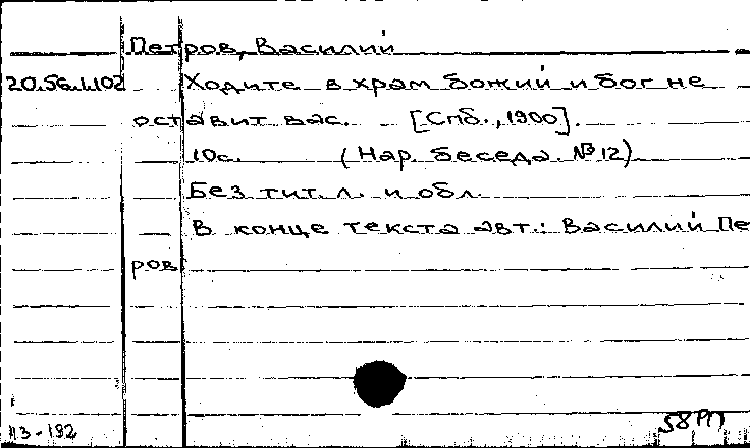 Петров, Василий
20.56.1.102 Ходите в храм божий и бог не
оставит вас. [Спб., 1900].
10с. (Нар. беседа. №12)
Без тит. л. и обл.
В конце текста авт.: Василий Пе
ров
113-192
58РП